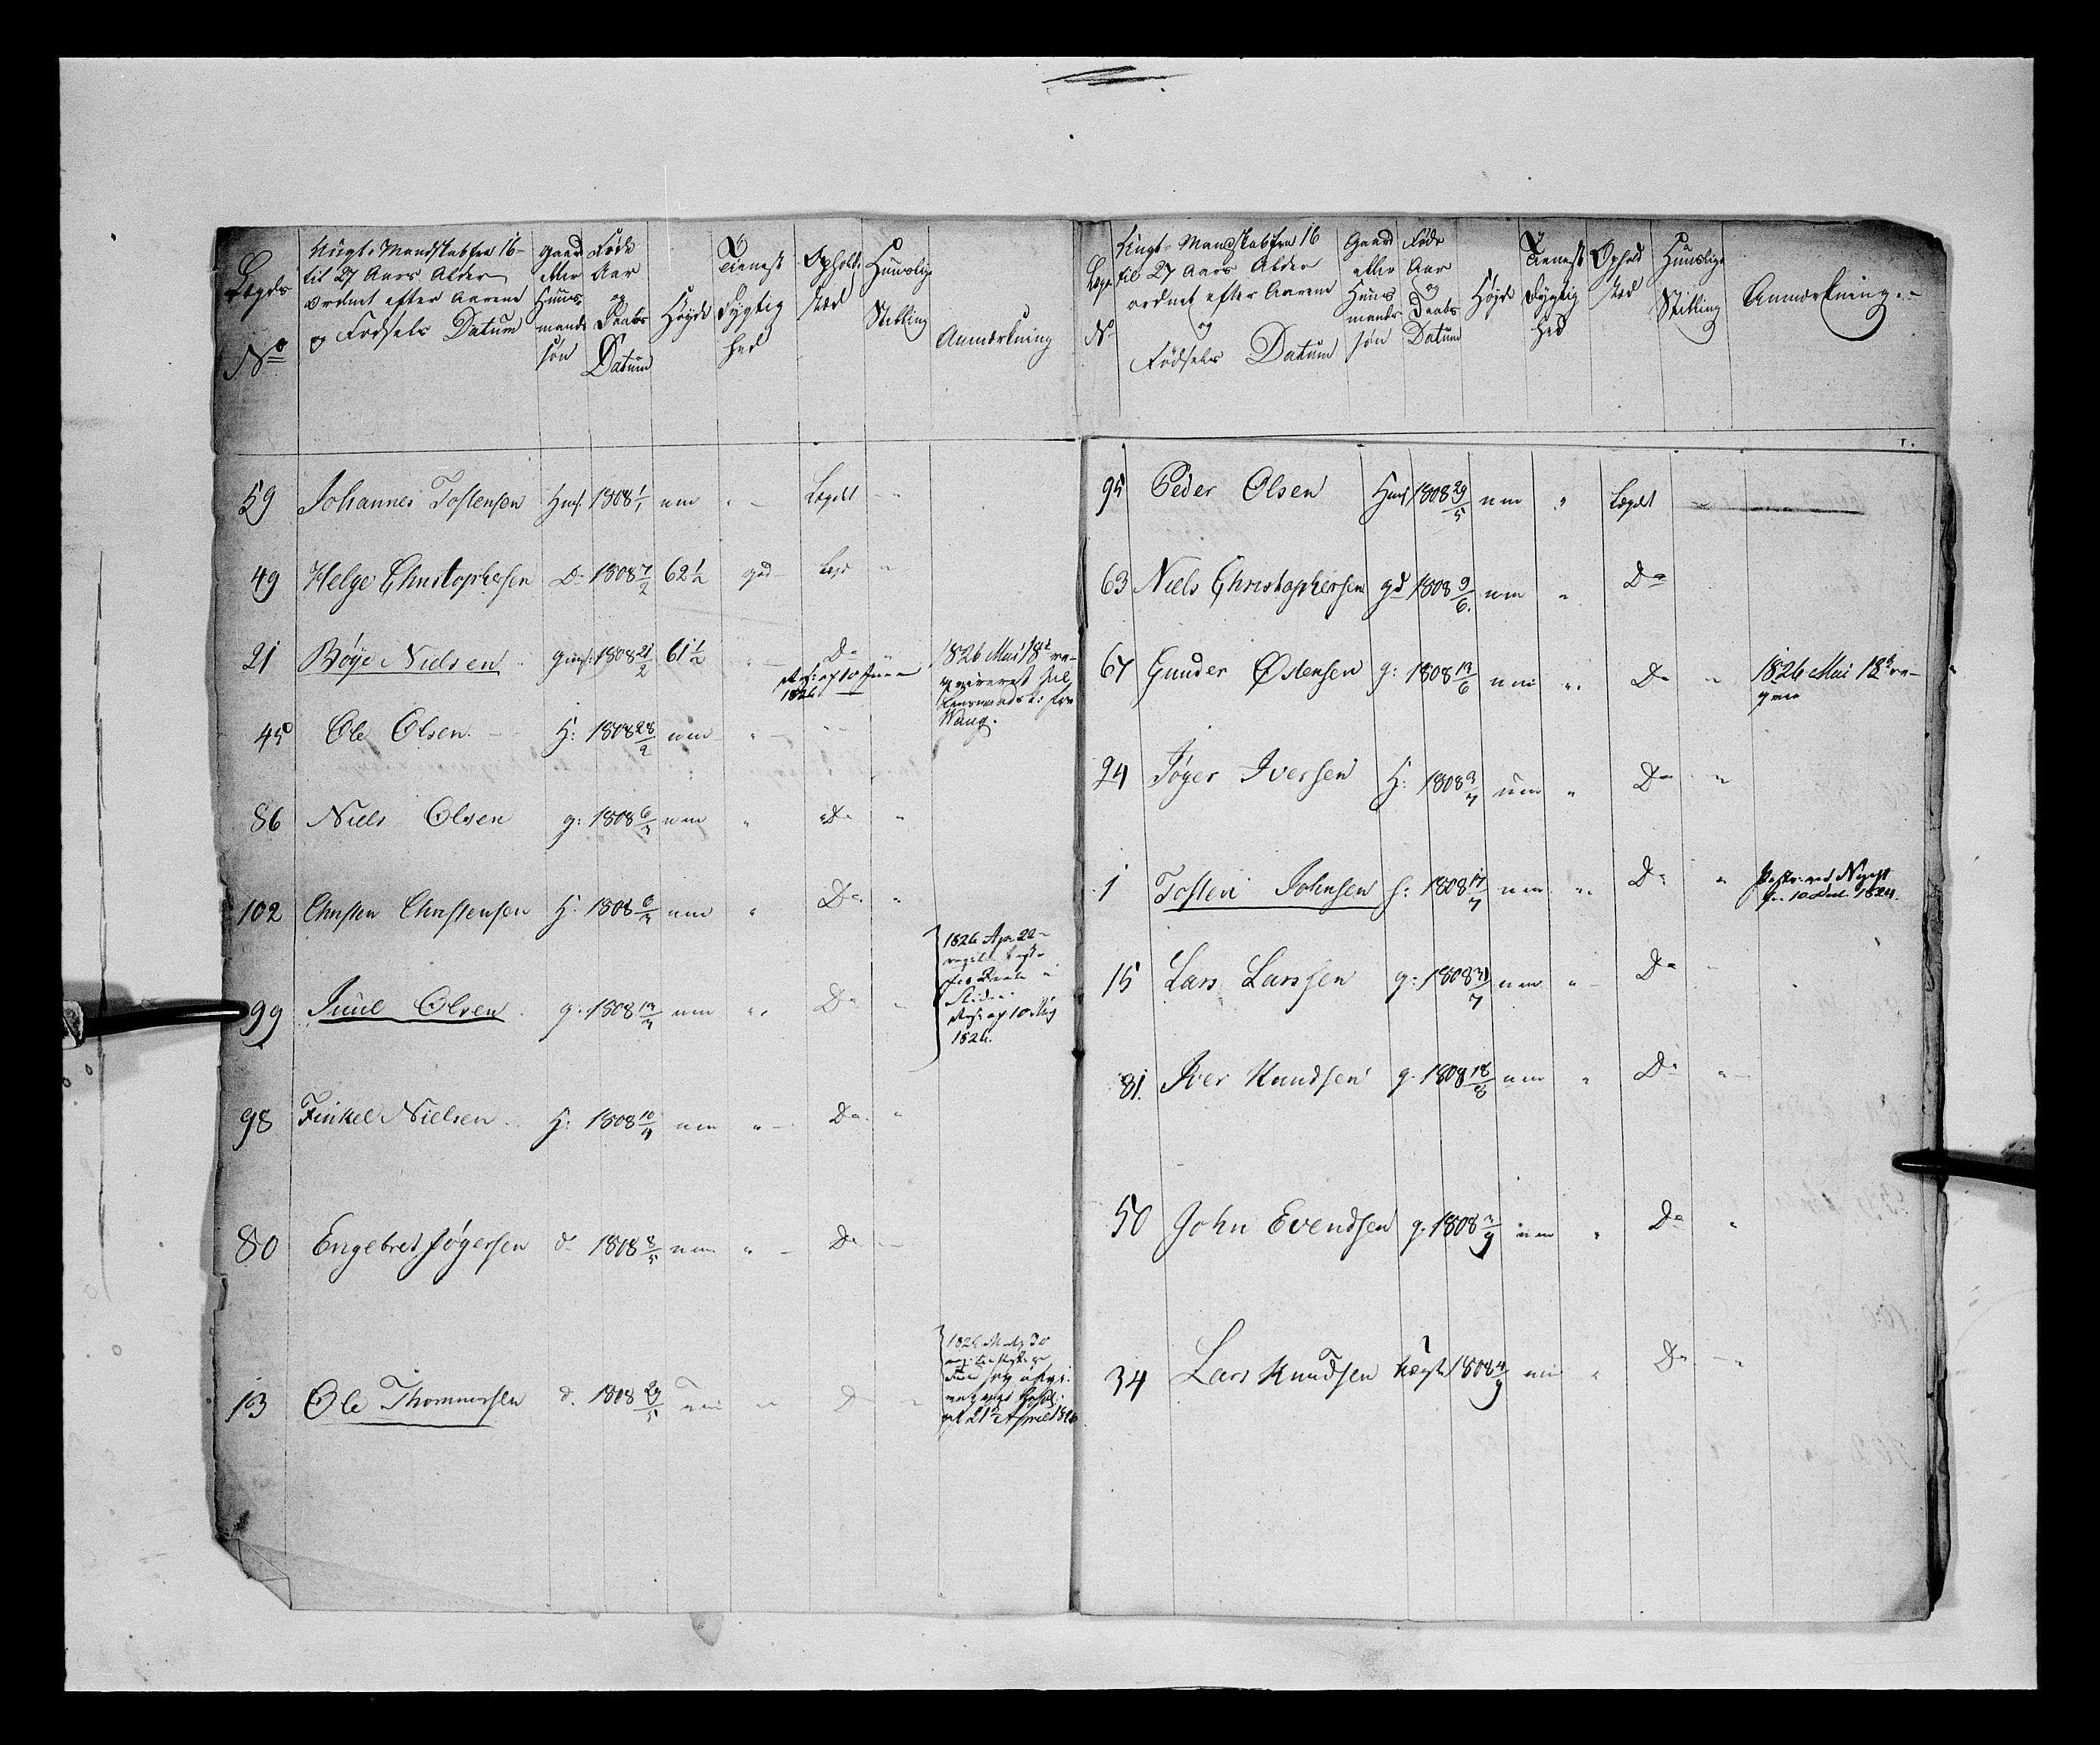 Lægds
No
Ungt-Mandskab fra 16-
til 27 Aars Alder
Ordnet efter Aarene
og Fødsels Datum
Gaard
eller
Huus-
mands
søn
Føde
Aar
og
Daabs
Datum
Høyde
Tienest
Dygtig
hed
Opholds
stæd
Huuslige
Stilling
Anmærkning
59 Johannes Tostensen Husm. 1808 1/1 um " Lægdet "
49 Helge Christophersen Do 1808 7/2 62 1/2 god Lægd "
21 Bøye Nielsen 1808 21/2 61 1/2 " Do "
10 Juni
1826
1826 Mai 18de
til
fra
Wang.
45 Ole Olsen H: 1808 28/2 um "
86 Niels Olsen g: 1808 6/3 um " Do "
102 Christen Christensen H. 1808 6/3 um " Do "
99 Juul Olsen g. 1808 13/3 um " Do "
1826 Apr 22
af 10 Mai
1826.
98 Finkel Nielsen H: 1808 10/4 um " Do "
80 Engebret Jøgersen d 1808 8/5 um " Do
13 Ole Thommesen d. 1808 29/5 um " D "
21de April 1826
Lægd
No
Ungt-Mandskab fra 16
til 27 Aars Alder
ordnet efter Aarene
og
Fødsels Datum
Gaard
eller
Huus
mands
søn
Føde
Aar
og
Daabs
Datum
Høyde
Tienest
Dygtig
hed
Ophold
stæd
Huuslige
Stilling
Anmærkning.
95 Peder Olsen Husm 1808 29/5 um " Lægdet
63 Niels Christophersen gd 1808 9/6. um " Do
67 Gunder Østensen g: 1808 13/6 um " Do " 1826 Mai 18de
24 Jøger Iversen H: 1808 3/7 um " Do "
1 Tosten Johnsen 1808 17/7 um " Do "
10 1824.
15 Lars Larssen g. 1808 31/7 um " Do
81. Iver Knudsen g. 1808 18/8 um " Do "
50 John Evendsen g. 1808 3/9 um " Do "
34 Lars Knudsen 1808 4/9 um " Do "